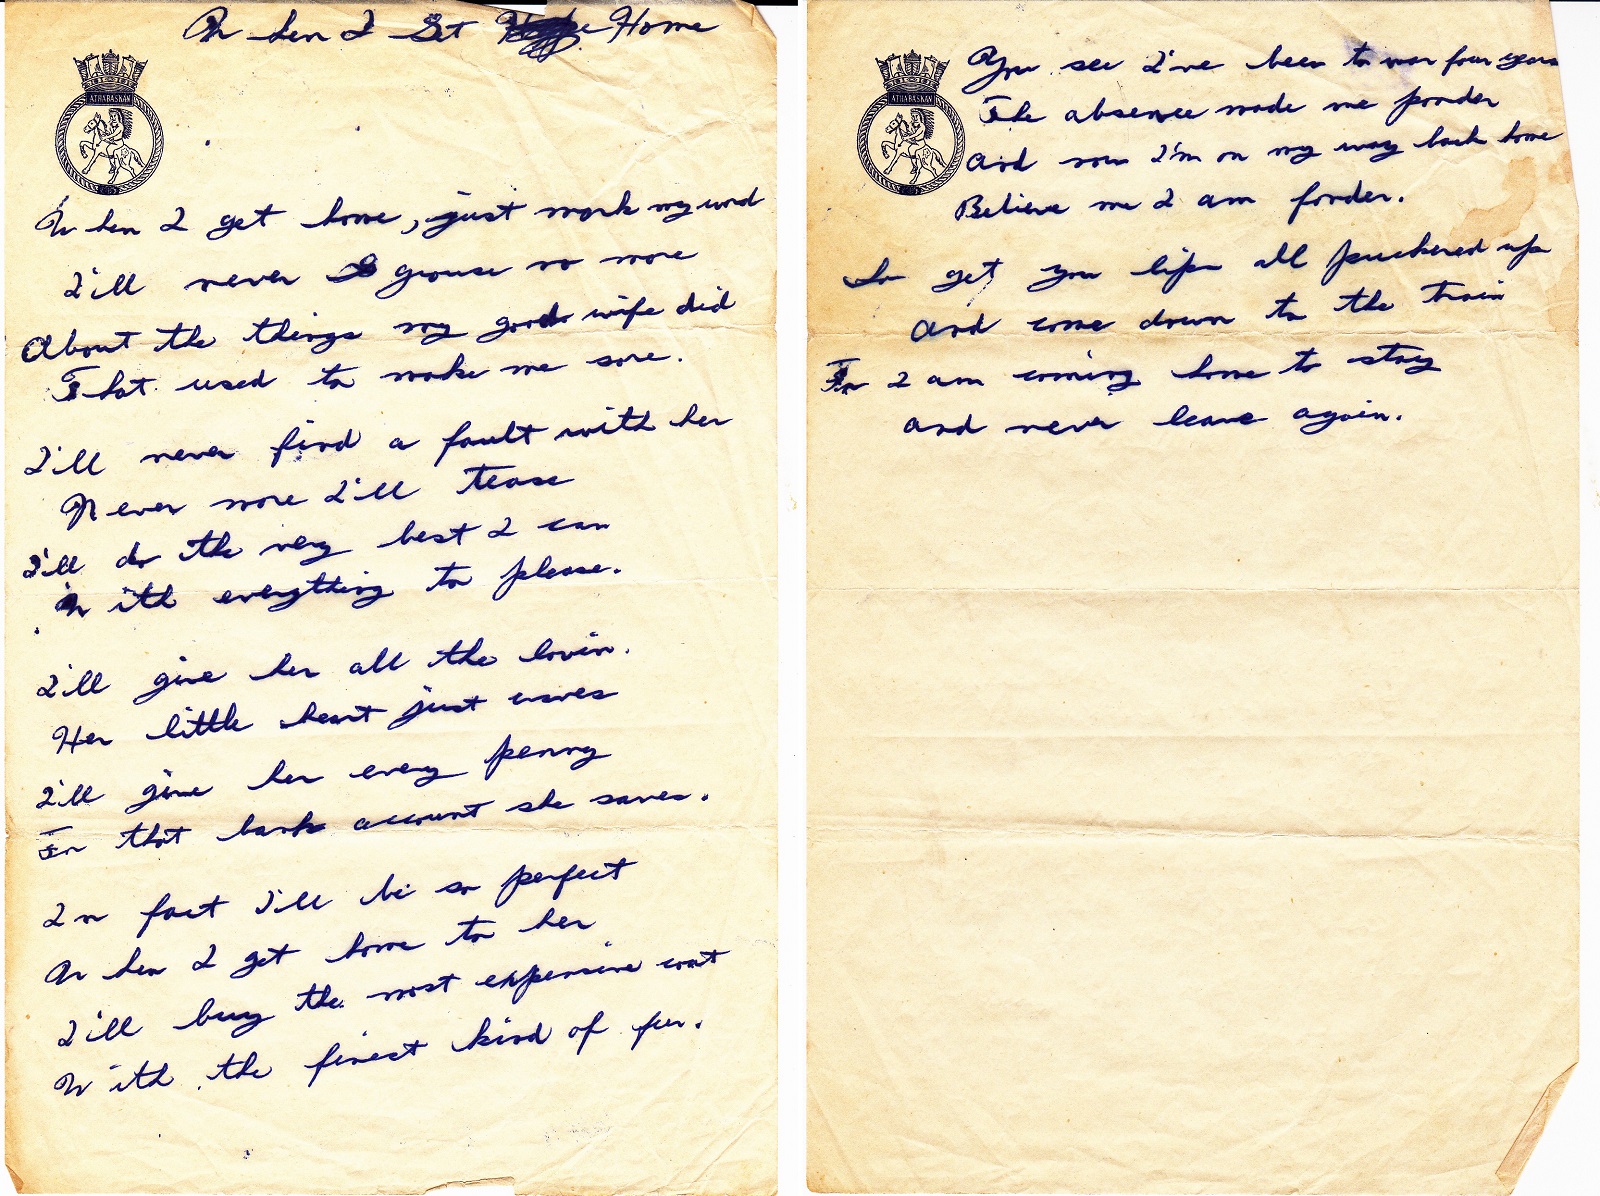 When I Get Home
ATHABASKAN
When I get home, just mark my word
I'll never grouse no more
About the things my good wife did
That used to make me sore.
I'll never find a fault with her
Never more I'll tease
I'll do the very best I can
With everything to please.
I'll give her all the lovin.
Her little heart just craves
I'll give her every penny
For that bank account she saves.
In fact I'll be so perfect
When I get home to her
I'll buy the most expensive coat
With the finest kind of fur.
ATHABASKAN
You see I've been to war four years
The absence made me ponder
And now I'm on my way back home
Believe me I am fonder.
So get you lips all puckered up
And come down to the train
For I am coming home to stay
and never leave again.